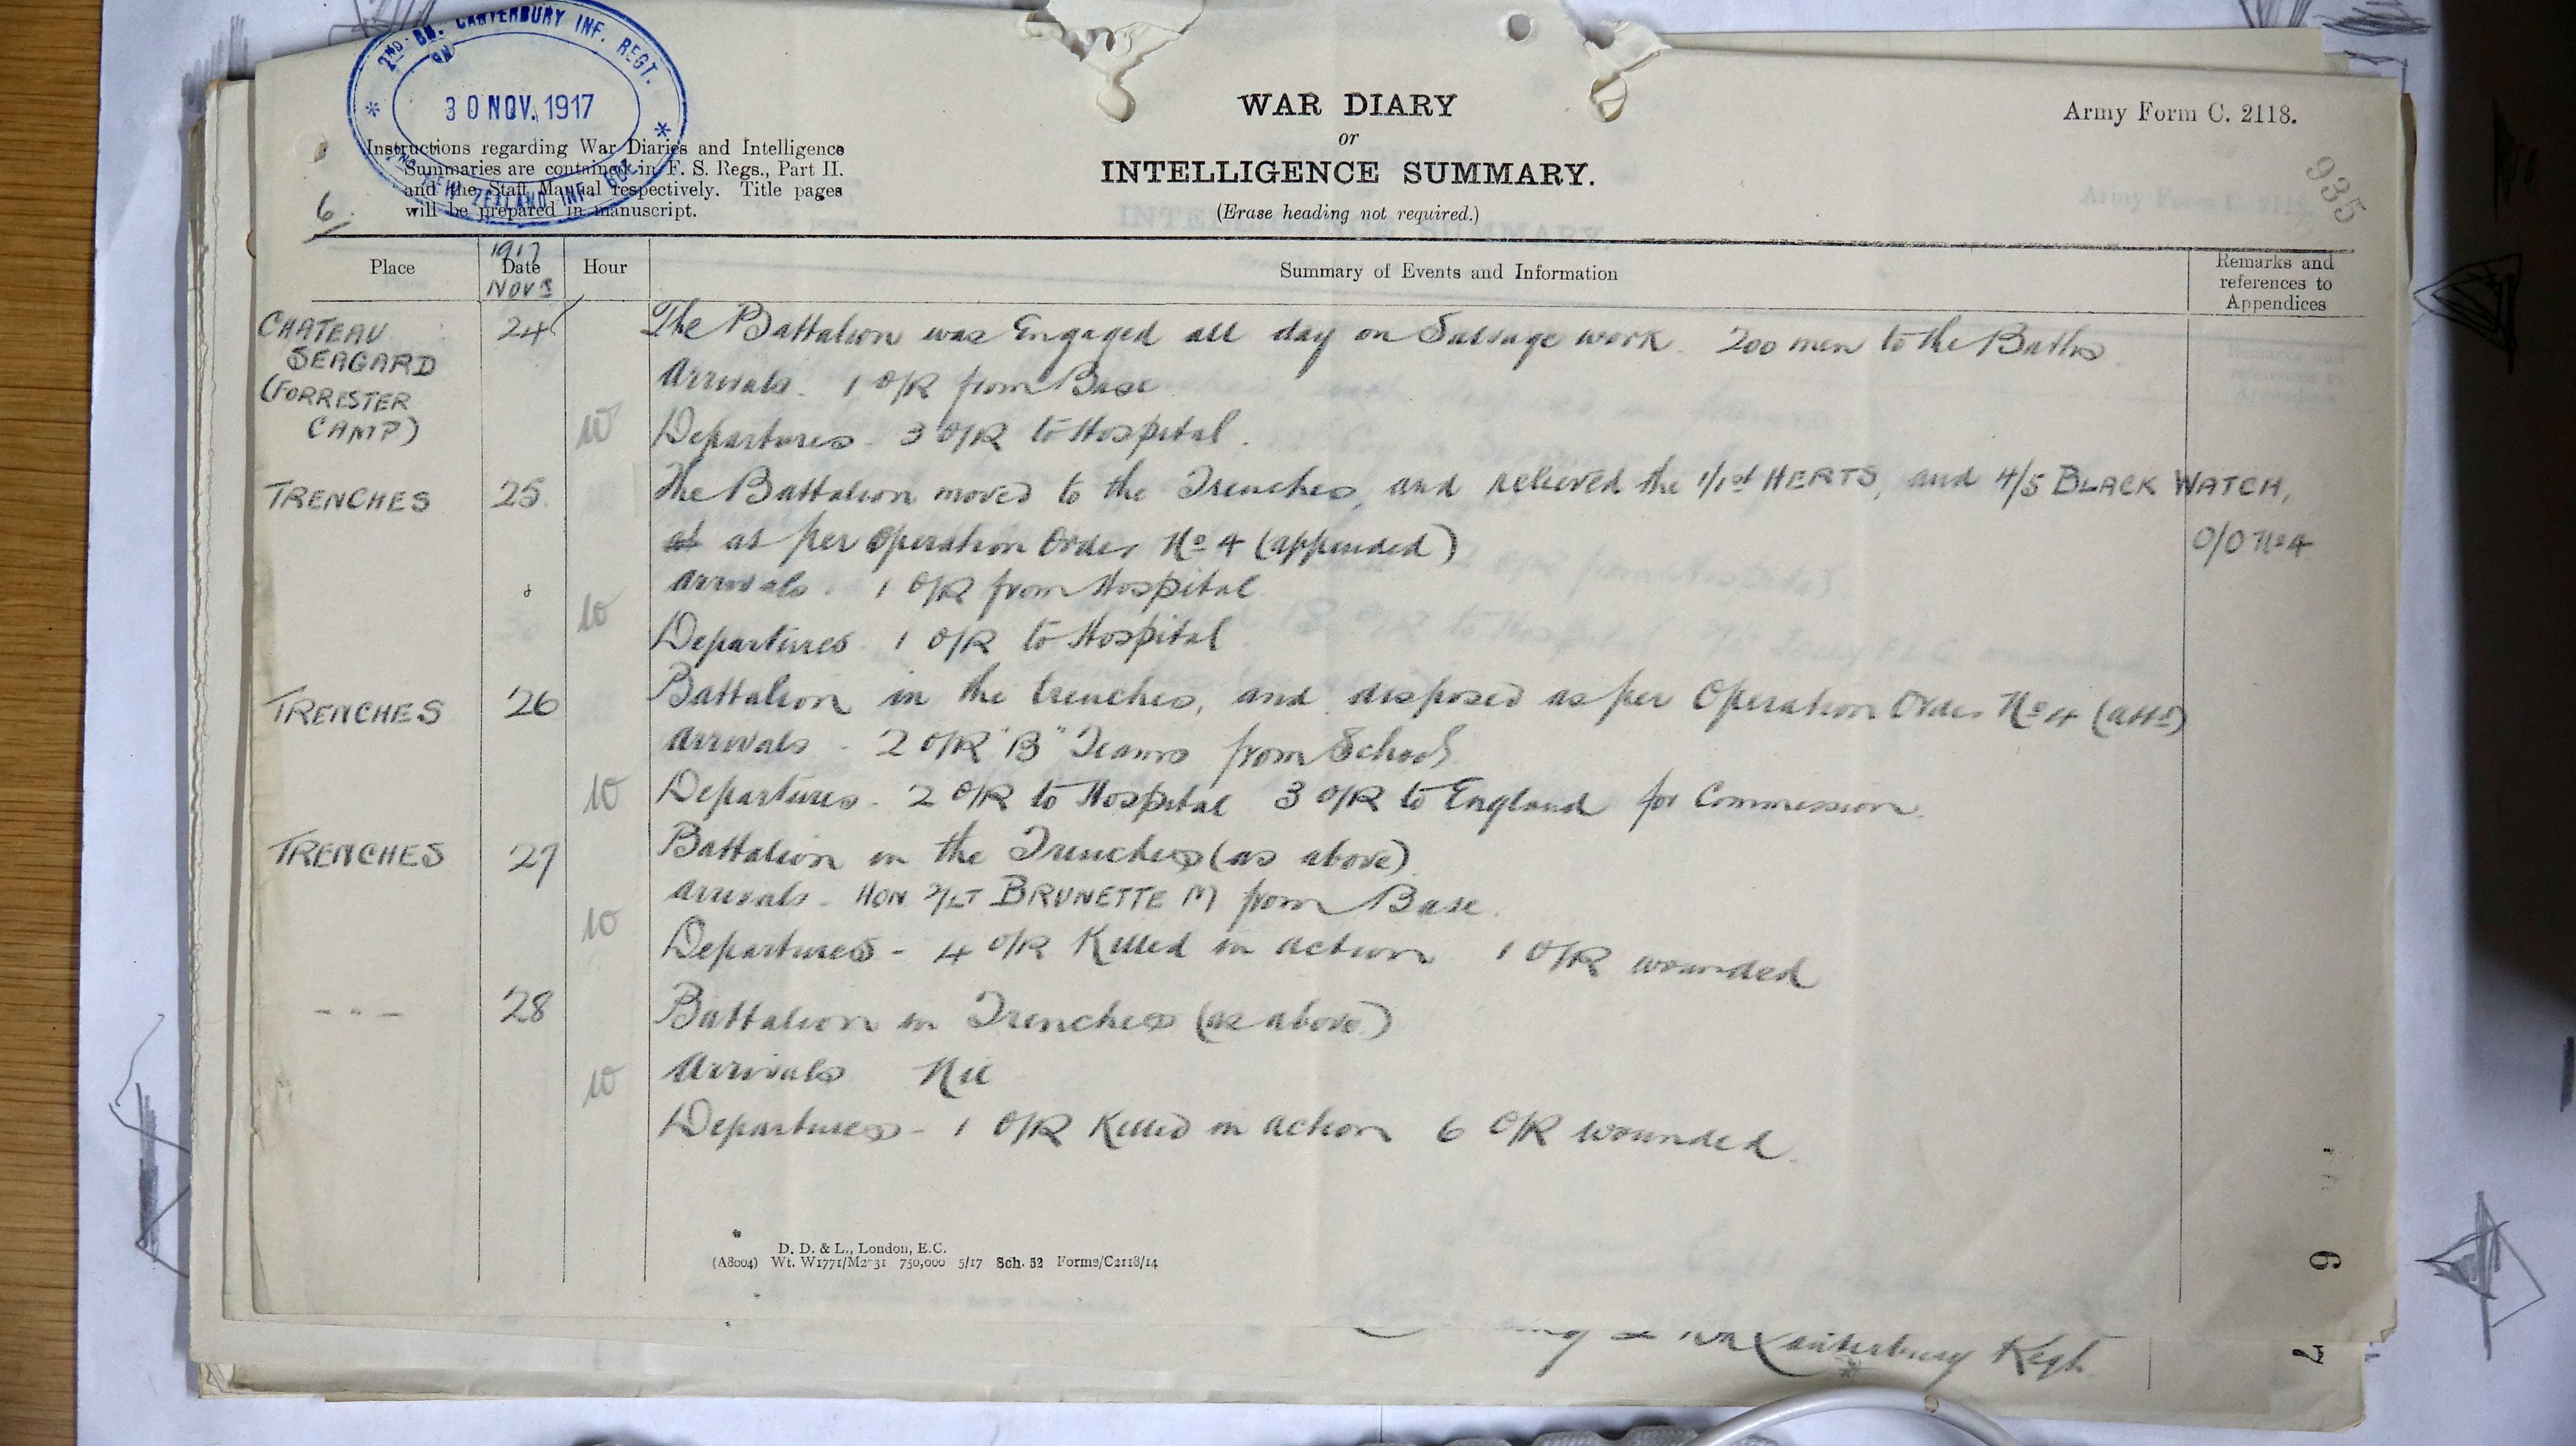 2ND. BN. CANTERBURY INF. REGT.
30 NOV. 1917
2ND NEW ZEALAND INF. BDE.
WAR DIARY
or
INTELLIGENCE SUMMARY.
(Erase heading not required.)
Army Form C. 2118.
935
Instructions regarding War Diaries and Intelligence
Summaries are contained in F. S. Regs., Part II.
and the Staff Manual respectively. Title pages
will be prepared in manuscript.
6.
Place 1917 Date NOVR Hour Summary of Events and Information Remarks and references to Appendices
CHATEAU 24 The Battalion was Engaged all day on Salvage work. 200 men to the Baths
SEAGARD Arrivals. 1 O/R from Base
(FORRESTER
CAMP) Departures - 3 O/R to Hospital.
TRENCHES 25. The Battalion moved to the Trenches, and relieved the 1/1st HERTS, and 4/5 BLACK WATCH,
at as per Operation Order No 4 (appended) O/O No 4
Arrivals. 1 O/R from Hospital
Departures. 1 O/R to Hospital
TRENCHES 26 Battalion in the trenches, and disposed as per Operation Order No 4 (attd)
Arrivals - 2 O/R "B" Teams from School
Departures - 2 O/R to Hospital 3 O/R to England for Commission.
TRENCHES 27 Battalion in the Trenches (as above)
Arrivals - HON 2/LT BRUNETTE M from Base.
Departures - 4 O/R Killed in action 1 O/R wounded
- " - 28 Battalion in Trenches (as above)
Arrivals Nil
Departures - 1 O/R Killed in action 6 O/R wounded.
D. D. & L., London, E.C.
(A8004) Wt. W1771/M2 31 750,000 5/17 Sch. 52 Forms/C2118/14
6
Canterbury Regt.
7